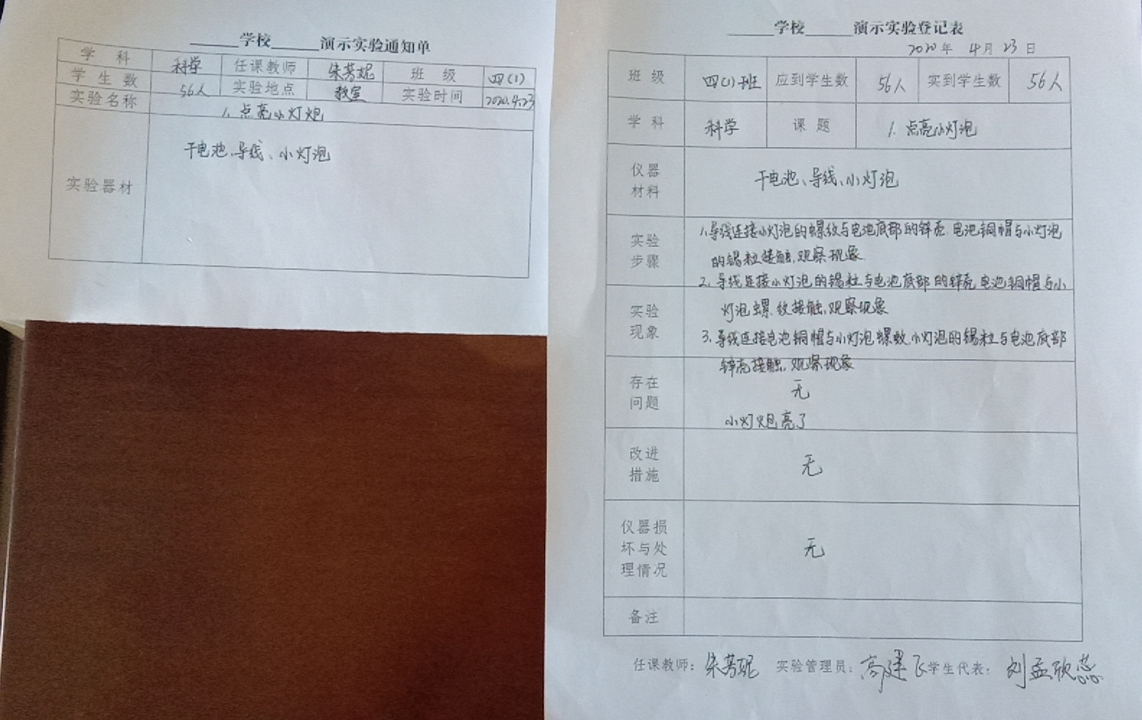 ______学校______演示实验通知单
学 科 科学 任课教师 朱芳妮 班 级 四(1)
学 生 数 56人 实验地点 教室 实验时间 2020.4.23
实验名称 1. 点亮小灯炮
实验器材 干电池、导线、小灯泡
______学校______演示实验登记表
2020年 4月 23日
班 级 四(1)班 应到学生数 56人 实到学生数 56人
学 科 科学 课 题 1. 点亮小灯泡
仪器
材料
干电池、导线、小灯泡
实验
步骤
1.导线连接小灯泡的螺纹与电池底部的锌壳,电池铜帽与小灯泡
的锡粒接触,观察现象
2. 导线连接小灯泡的锡粒与电池底部的锌壳,电池铜帽与小
实验
现象
灯泡螺纹接触,观察现象
3. 导线连接电池铜帽与小灯泡螺纹,小灯泡的锡粒与电池底部
锌壳接触,观察现象
存在
问题
无
小灯炮亮了
改进
措施
无
仪器损
坏与处
理情况
无
备注
任课教师: 朱芳妮 实验管理员: 高建飞 学生代表: 刘孟欣蕊